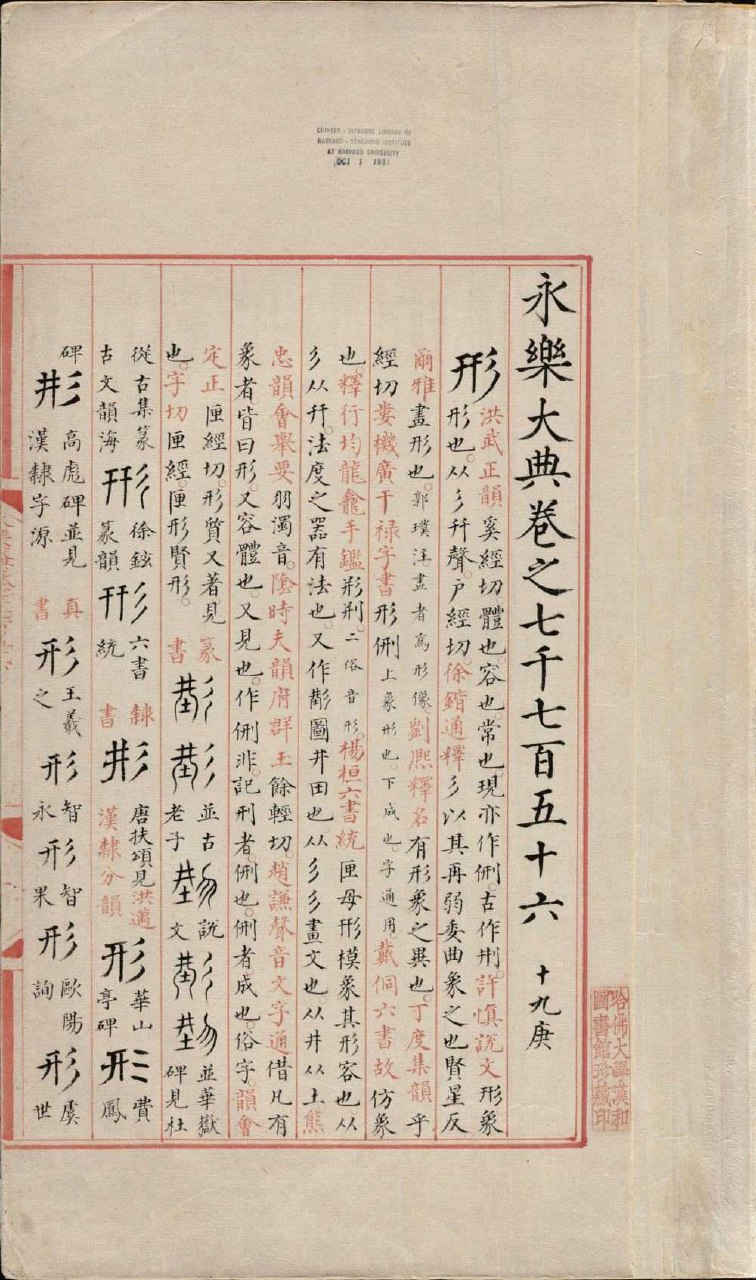 CHINESE - JAPANESE LIBRARY OF
HARVARD - YENCHING INSTITUTE
AT HARVARD UNIVERSITY
OCT 1 1951
永樂大典卷之七千七百五十六 十九庚
形 洪武正韻奚經切體也容也常也現亦作侀古作㓝許慎說文形象
形也从彡幵聲戶經切徐鍇通釋彡以其再弱委曲象之也賢星反
爾雅畫形也郭璞注畫者為形像劉熙釋名有形象之異也丁度集韻乎
經切婁機廣干祿字書形侀上象形也下成也字通用戴侗六書故仿象
也釋行均龍龕手鑑形㓝二俗音形楊桓六書統匣母形模象其形容也从
彡从幵法度之器有法也又作圖井田也从彡彡畫文也从井从土熊
忠韻會舉要羽濁音陰時夫韻府群玉餘輕切趙謙聲音文字通借凡有
象者皆曰形又容體也又見也作侀非記刑者侀也侀者成也俗字韻會
定正匣經切形質又著見 篆 並古 說 並華嶽
也字切匣經匣形賢形 書 老子 文 碑見杜
從古集篆 形 徐鉉 形 六書 隸 形 唐扶頌見洪适 形 華山 形 費
古文韻海 篆韻 統 書 漢隸分韻 亭碑 鳳
碑 形 高彪碑並見 真 形 王羲 形 智 形 智 形 歐陽 形 虞
漢隸字源 書 之 永 果 詢 世
哈佛大學漢和
圖書館珍藏印